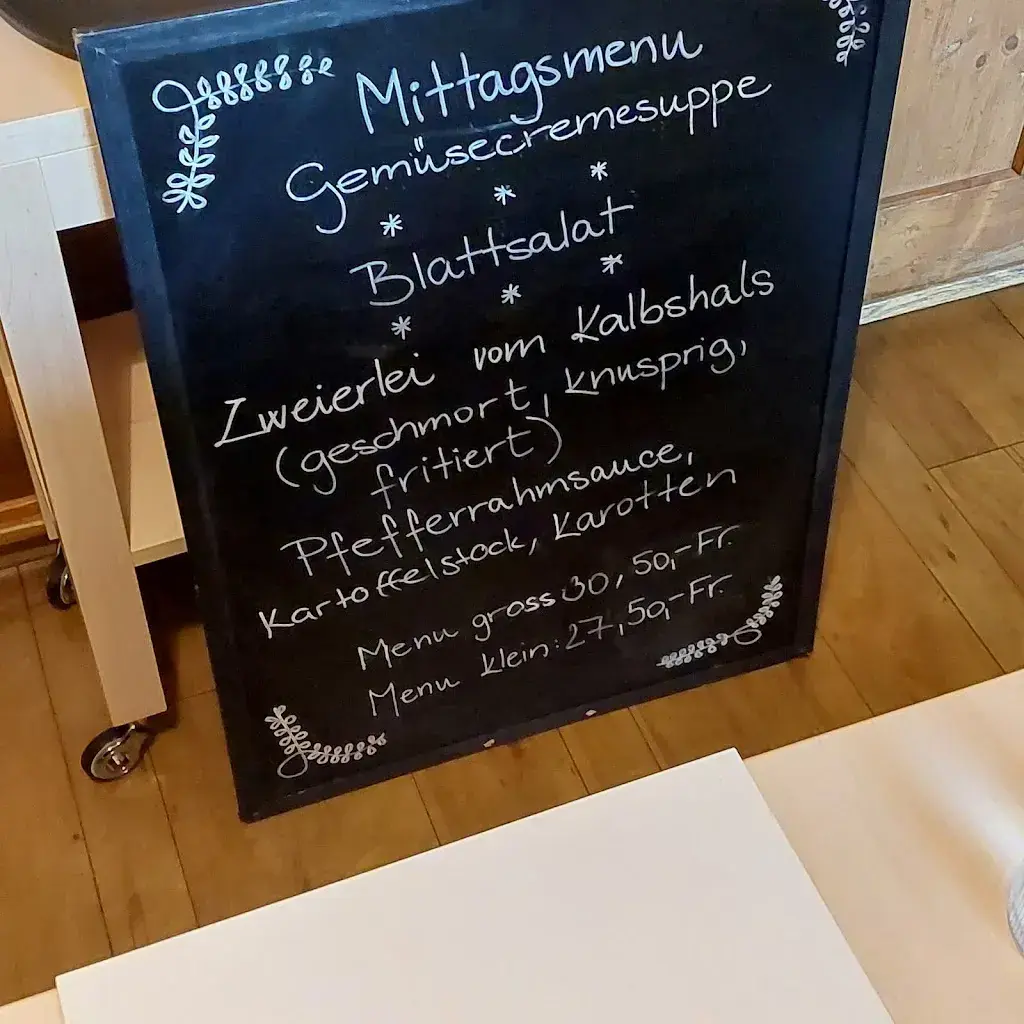 Mittagsmenu
Gemüsecremesuppe
* * *
Blattsalat
* * *
Zweierlei vom Kalbshals
(geschmort, knusprig,
fritiert)
Pfefferrahmsauce,
Kartoffelstock, Karotten
Menu gross 30,50,-Fr.
Menu klein: 27,50,-Fr.